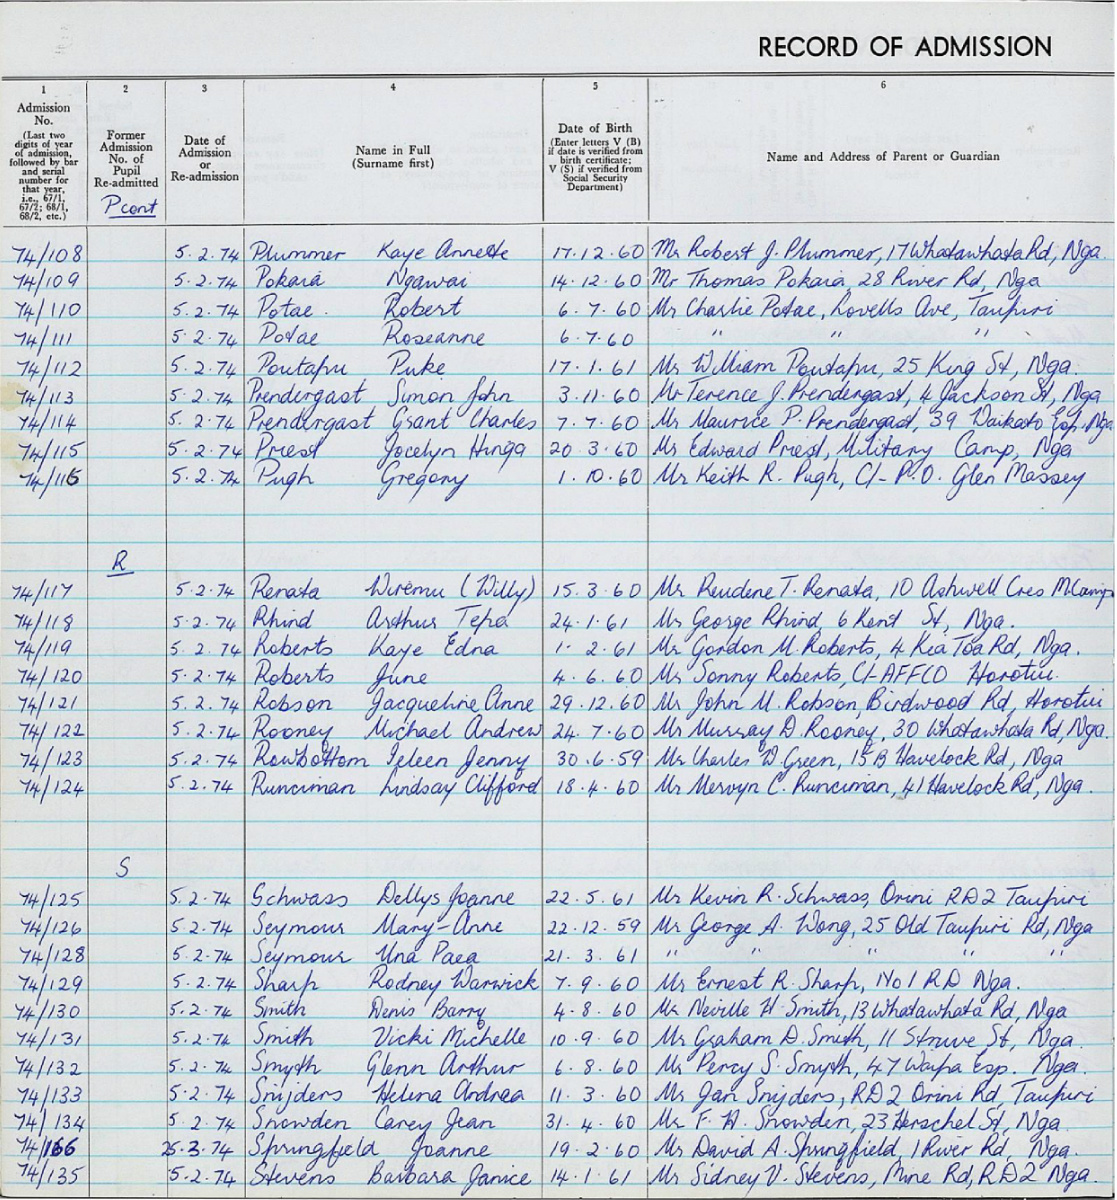 RECORD OF ADMISSION
1 2 3 4 5 6
Admission No. (Last two digits of year of admission, followed by bar and serial number for that year, i.e., 67/1, 67/2; 68/1, 68/2, etc.)
Former Admission No. of Pupil Re-admitted
Date of Admission or Re-admission
Name in Full (Surname first)
Date of Birth (Enter letters V (B) if date is verified from birth certificate; V (S) if verified from Social Security Department)
Name and Address of Parent or Guardian
P cont
74/108 5.2.74 Plummer Kaye Annette 17.12.60 Mr Robert J. Plummer, 17 Whatawhata Rd, Nga.
74/109 5.2.74 Pokaia Ngawai 14.12.60 Mr Thomas Pokaia, 28 River Rd, Nga
74/110 5.2.74 Potae. Robert 6.7.60 Mr Charlie Potae, Lovells Ave, Taupiri
74/111 5.2.74 Potae Roseanne 6.7.60 " " "
74/112 5.2.74 Poutapu Puke 17.1.61 Mr William Poutapu, 25 King St, Nga.
74/113 5.2.74 Prendergast Simon John 3.11.60 Mr Terence J. Prendergast, 4 Jackson St, Nga
74/114 5.2.74 Prendergast Grant Charles 7.7.60 Mr Maurice P. Prendergast, 39 Waikato Esp. Nga
74/115 5.2.74 Priest Jocelyn Hinga 20.3.60 Mr Edward Priest, Military Camp, Nga
74/116 5.2.74 Pugh Gregory 1.10.60 Mr Keith R. Pugh, C/- P.O. Glen Massey
R
74/117 5.2.74 Renata Wiremu (Willy) 15.3.60 Mr Reudene T. Renata, 10 Ashwell Cres M.Camp
74/118 5.2.74 Rhind Arthur Tepa 24.1.61 Mr George Rhind, 6 Kent St, Nga.
74/119 5.2.74 Roberts Kaye Edna 1.2.61 Mr Gordon M. Roberts, 4 Kia Toa Rd, Nga.
74/120 5.2.74 Roberts June 4.6.60 Mr Sonny Roberts, C/- AFFCO Horotiu.
74/121 5.2.74 Robson Jacqueline Anne 29.12.60 Mr John M. Robson, Birdwood Rd, Horotiu
74/122 5.2.74 Rooney Michael Andrew 24.7.60 Mr Murray D. Rooney, 30 Whatawhata Rd, Nga.
74/123 5.2.74 Rowbottom Ieleen Jenny 30.6.59 Mr Charles W. Green, 15B Havelock Rd, Nga
74/124 5.2.74 Runciman Lindsay Clifford 18.4.60 Mr Mervyn C. Runciman, 41 Havelock Rd, Nga.
S
74/125 5.2.74 Schwass Dellys Joanne 22.5.61 Mr Kevin R. Schwass, Orini RD2 Taupiri
74/126 5.2.74 Seymour Mary-Anne 22.12.59 Mr George A. Wong, 25 Old Taupiri Rd, Nga
74/128 5.2.74 Seymour Una Paea 21.3.61 " " " "
74/129 5.2.74 Sharp Rodney Warwick 7.9.60 Mr Ernest R. Sharp, No 1 RD Nga.
74/130 5.2.74 Smith Denis Barry 4.8.60 Mr Neville H. Smith, 13 Whatawhata Rd, Nga
74/131 5.2.74 Smith Vicki Michelle 10.9.60 Mr Graham D. Smith, 11 Struve St, Nga.
74/132 5.2.74 Smyth Glenn Arthur 6.8.60 Mr Percy S. Smyth, 47 Waipa Esp. Nga.
74/133 5.2.74 Snijders Helena Andrea 11.3.60 Mr Jan Snijders, RD2 Orini Rd, Taupiri
74/134 5.2.74 Snowden Carey Jean 31.4.60 Mr F. H. Snowden, 23 Herschel St, Nga.
74/166 25.3.74 Springfield Joanne 19.2.60 Mr David A. Springfield, 1 River Rd, Nga.
74/135 5.2.74 Stevens Barbara Janice 14.1.61 Mr Sidney V. Stevens, Mine Rd, RD2 Nga.